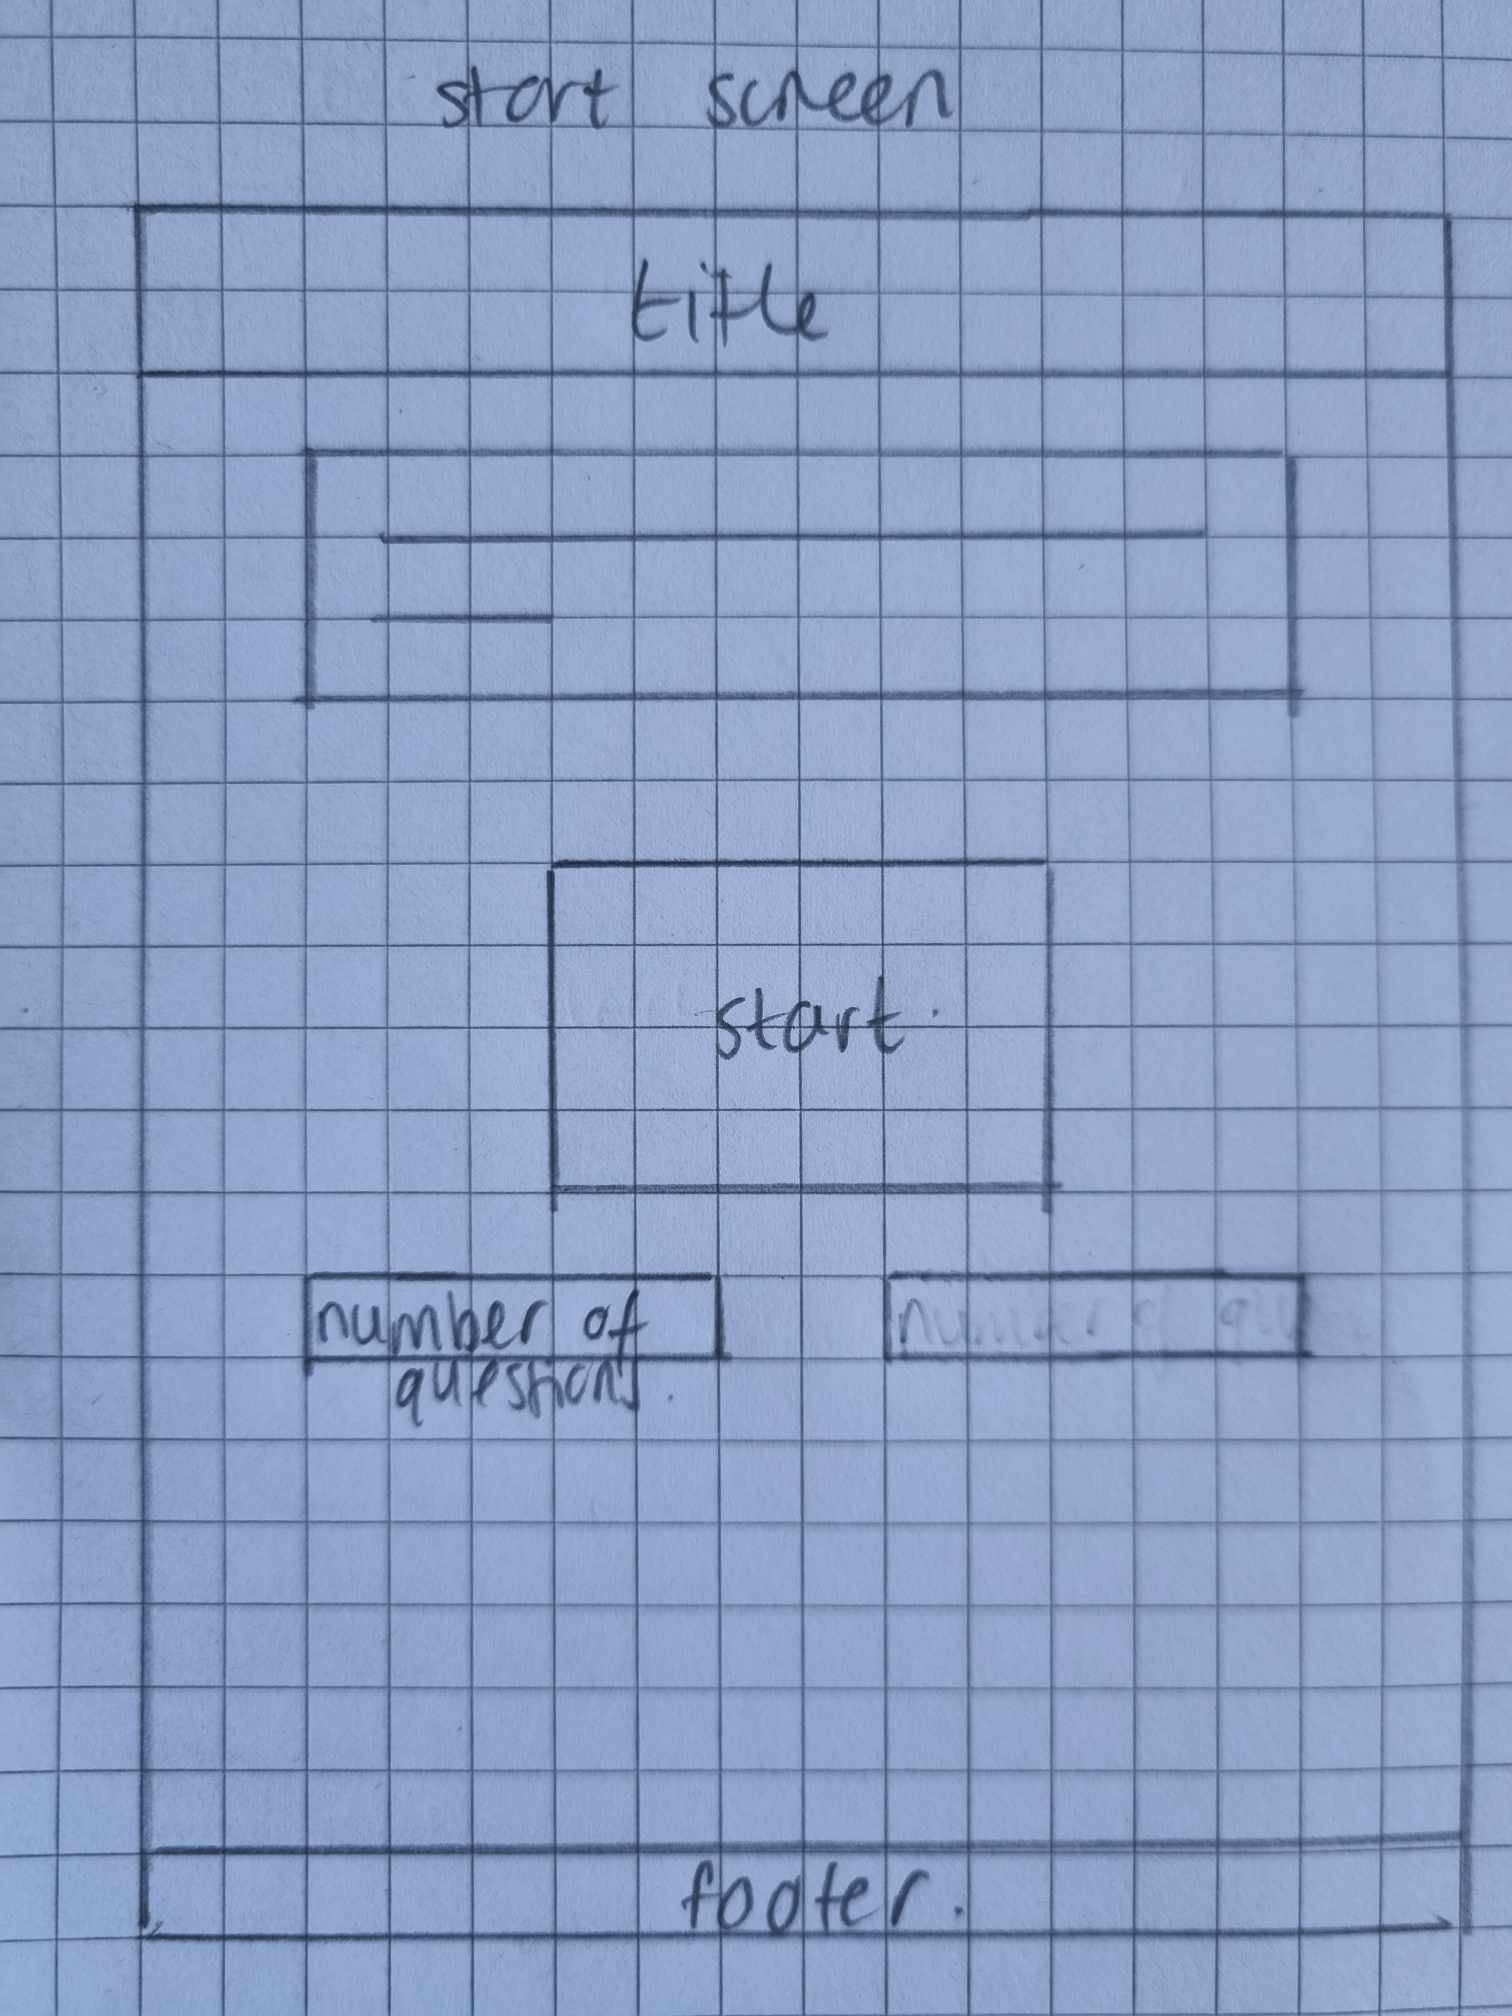 start screen
title
start
number of
questions.
footer.